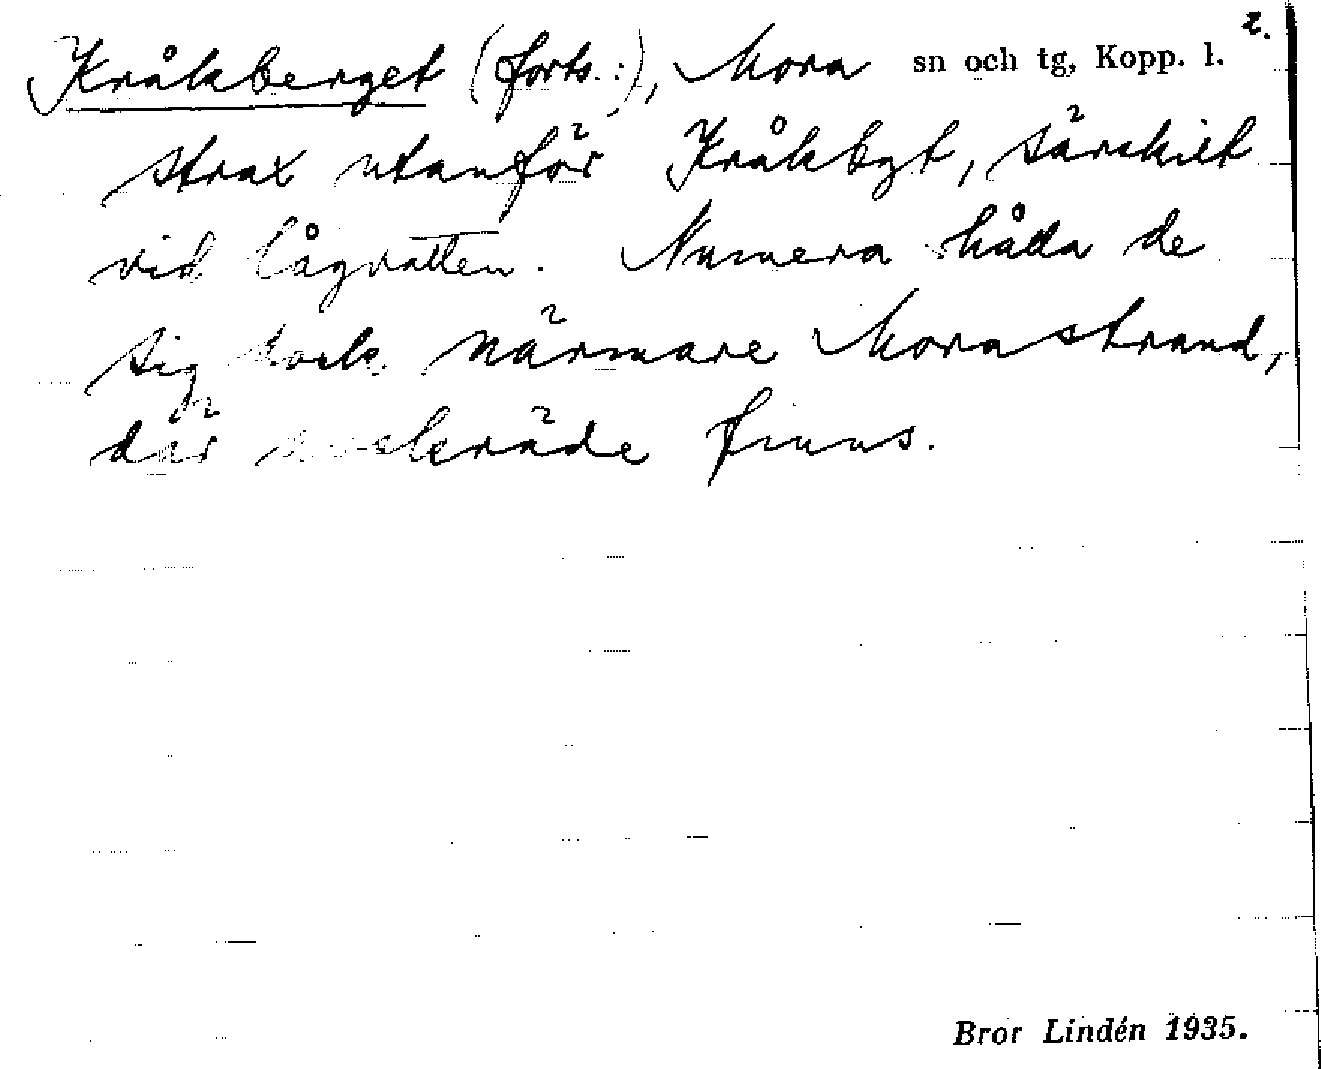 2.
Kråkberget (forts.:), Mora sn och tg, Kopp. l.
strax utanför Kråkbgt, särskilt
vid lågvatten. Numera hålla de
sig dock närmare Morastrand,
där finns.
Bror Lindén 1935.